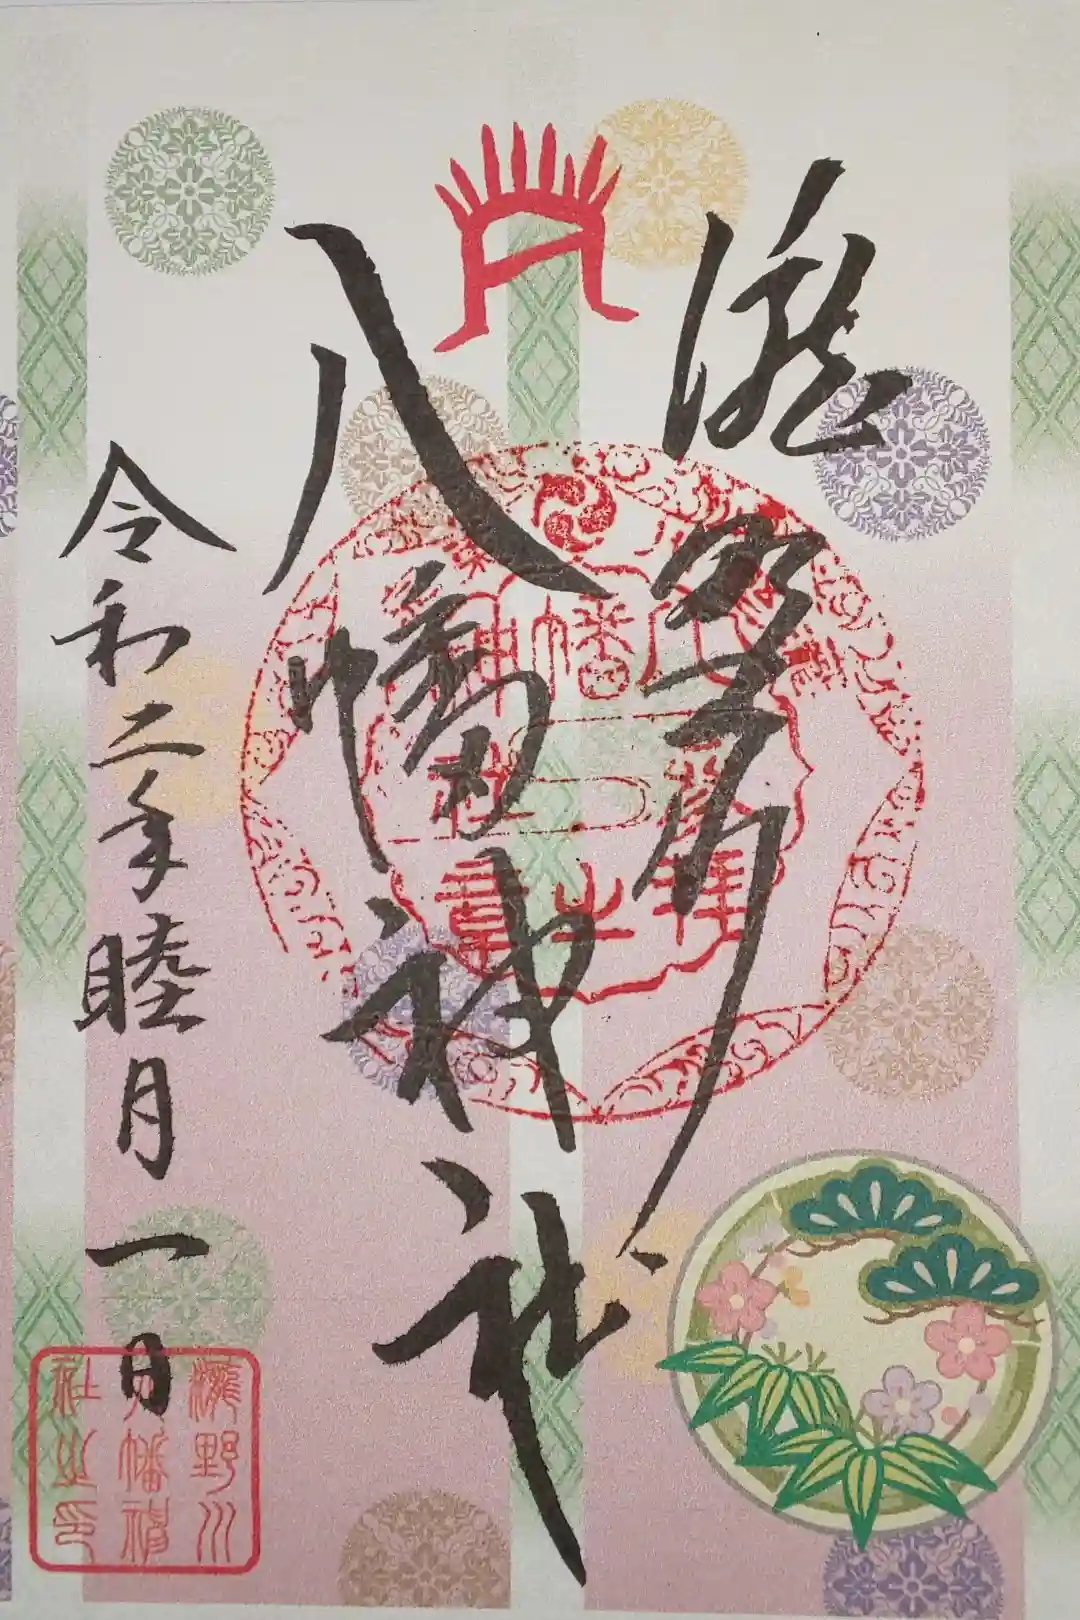 滝野川
八幡神社
令和二年睦月一日
瀧野川
八幡神
社之印